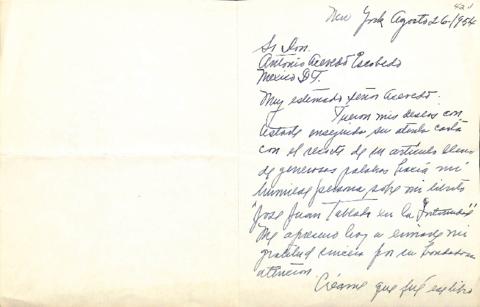 42
New York Agosto 26/954
Sr. Don.
Antonio Acevedo Escobedo
Mexico D.F.
Muy estimado señor Acevedo:
Fueron mis deseos con
enseguida su atenta carta
con el recorte de su articulo lleno
de generosas palabras hacia mi
humilde persona sobre mi librito
"José Juan Tablada en la Intimidad"
Me apresuro hoy a enviarle mi
gratitud sincera por su bondadosa
atención.
Créame que fué ese libro